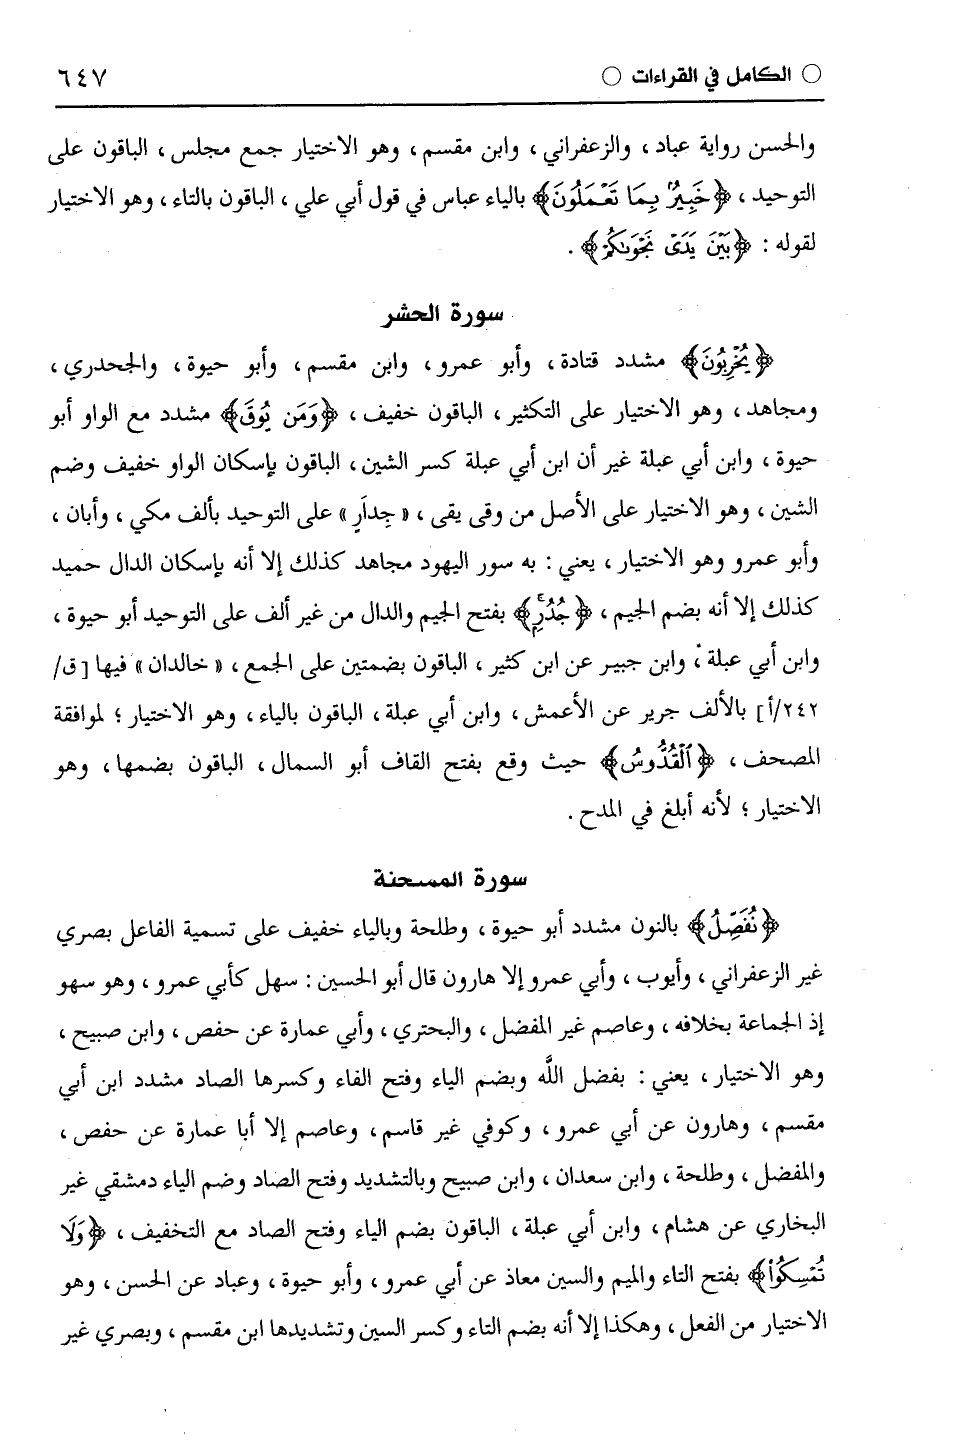 ○ الكامل في القراءات ○ ٦٤٧
والحسن رواية عباد ، والزعفراني ، وابن مقسم ، وهو الاختيار جمع مجلس ، الباقون على
التوحيد ، ﴿خَبِيرٌ بِمَا تَعْمَلُونَ﴾ بالياء عباس في قول أبي علي ، الباقون بالتاء ، وهو الاختيار
لقوله : ﴿بَيْنَ يَدَىْ نَجْوَىٰكُمْ﴾ .
سورة الحشر
﴿يُخْرِبُونَ﴾ مشدد قتادة ، وأبو عمرو ، وابن مقسم ، وأبو حيوة ، والجحدري ،
ومجاهد ، وهو الاختيار على التكثير ، الباقون خفيف ، ﴿وَمَن يُوقَ﴾ مشدد مع الواو أبو
حيوة ، وابن أبي عبلة غير أن ابن أبي عبلة كسر الشين ، الباقون بإسكان الواو خفيف وضم
الشين ، وهو الاختيار على الأصل من وقى يقى ، « جِدَارٍ » على التوحيد بألف مكي ، وأبان ،
وأبو عمرو وهو الاختيار ، يعني : به سور اليهود مجاهد كذلك إلا أنه بإسكان الدال حميد
كذلك إلا أنه بضم الجيم ، ﴿جُدُرٍ﴾ بفتح الجيم والدال من غير ألف على التوحيد أبو حيوة ،
وابن أبي عبلة ، وابن جبير عن ابن كثير ، الباقون بضمتين على الجمع ، « خالدان » فيها [ق/
٢٤٢/أ] بالألف جرير عن الأعمش ، وابن أبي عبلة ، الباقون بالياء ، وهو الاختيار ؛ لموافقة
المصحف ، ﴿ٱلْقُدُّوسُ﴾ حيث وقع بفتح القاف أبو السمال ، الباقون بضمها ، وهو
الاختيار ؛ لأنه أبلغ في المدح .
سورة الممتحنة
﴿نُفَصِّلُ﴾ بالنون مشدد أبو حيوة ، وطلحة وبالياء خفيف على تسمية الفاعل بصري
غير الزعفراني ، وأيوب ، وأبي عمرو إلا هارون قال أبو الحسين : سهل كأبي عمرو ، وهو سهو
إذ الجماعة بخلافه ، وعاصم غير المفضل ، والبحتري ، وأبي عمارة عن حفص ، وابن صبيح ،
وهو الاختيار ، يعني : بفضل اللَّه وبضم الياء وفتح الفاء وكسرها الصاد مشدد ابن أبي
مقسم ، وهارون عن أبي عمرو ، وكوفي غير قاسم ، وعاصم إلا أبا عمارة عن حفص ،
والمفضل ، وطلحة ، وابن سعدان ، وابن صبيح وبالتشديد وفتح الصاد وضم الياء دمشقي غير
البخاري عن هشام ، وابن أبي عبلة ، الباقون بضم الياء وفتح الصاد مع التخفيف ، ﴿وَلَا
تُمْسِكُوا۟﴾ بفتح التاء والميم والسين معاذ عن أبي عمرو ، وأبو حيوة ، وعباد عن الحسن ، وهو
الاختيار من الفعل ، وهكذا إلا أنه بضم التاء وكسر السين وتشديدها ابن مقسم ، وبصري غير